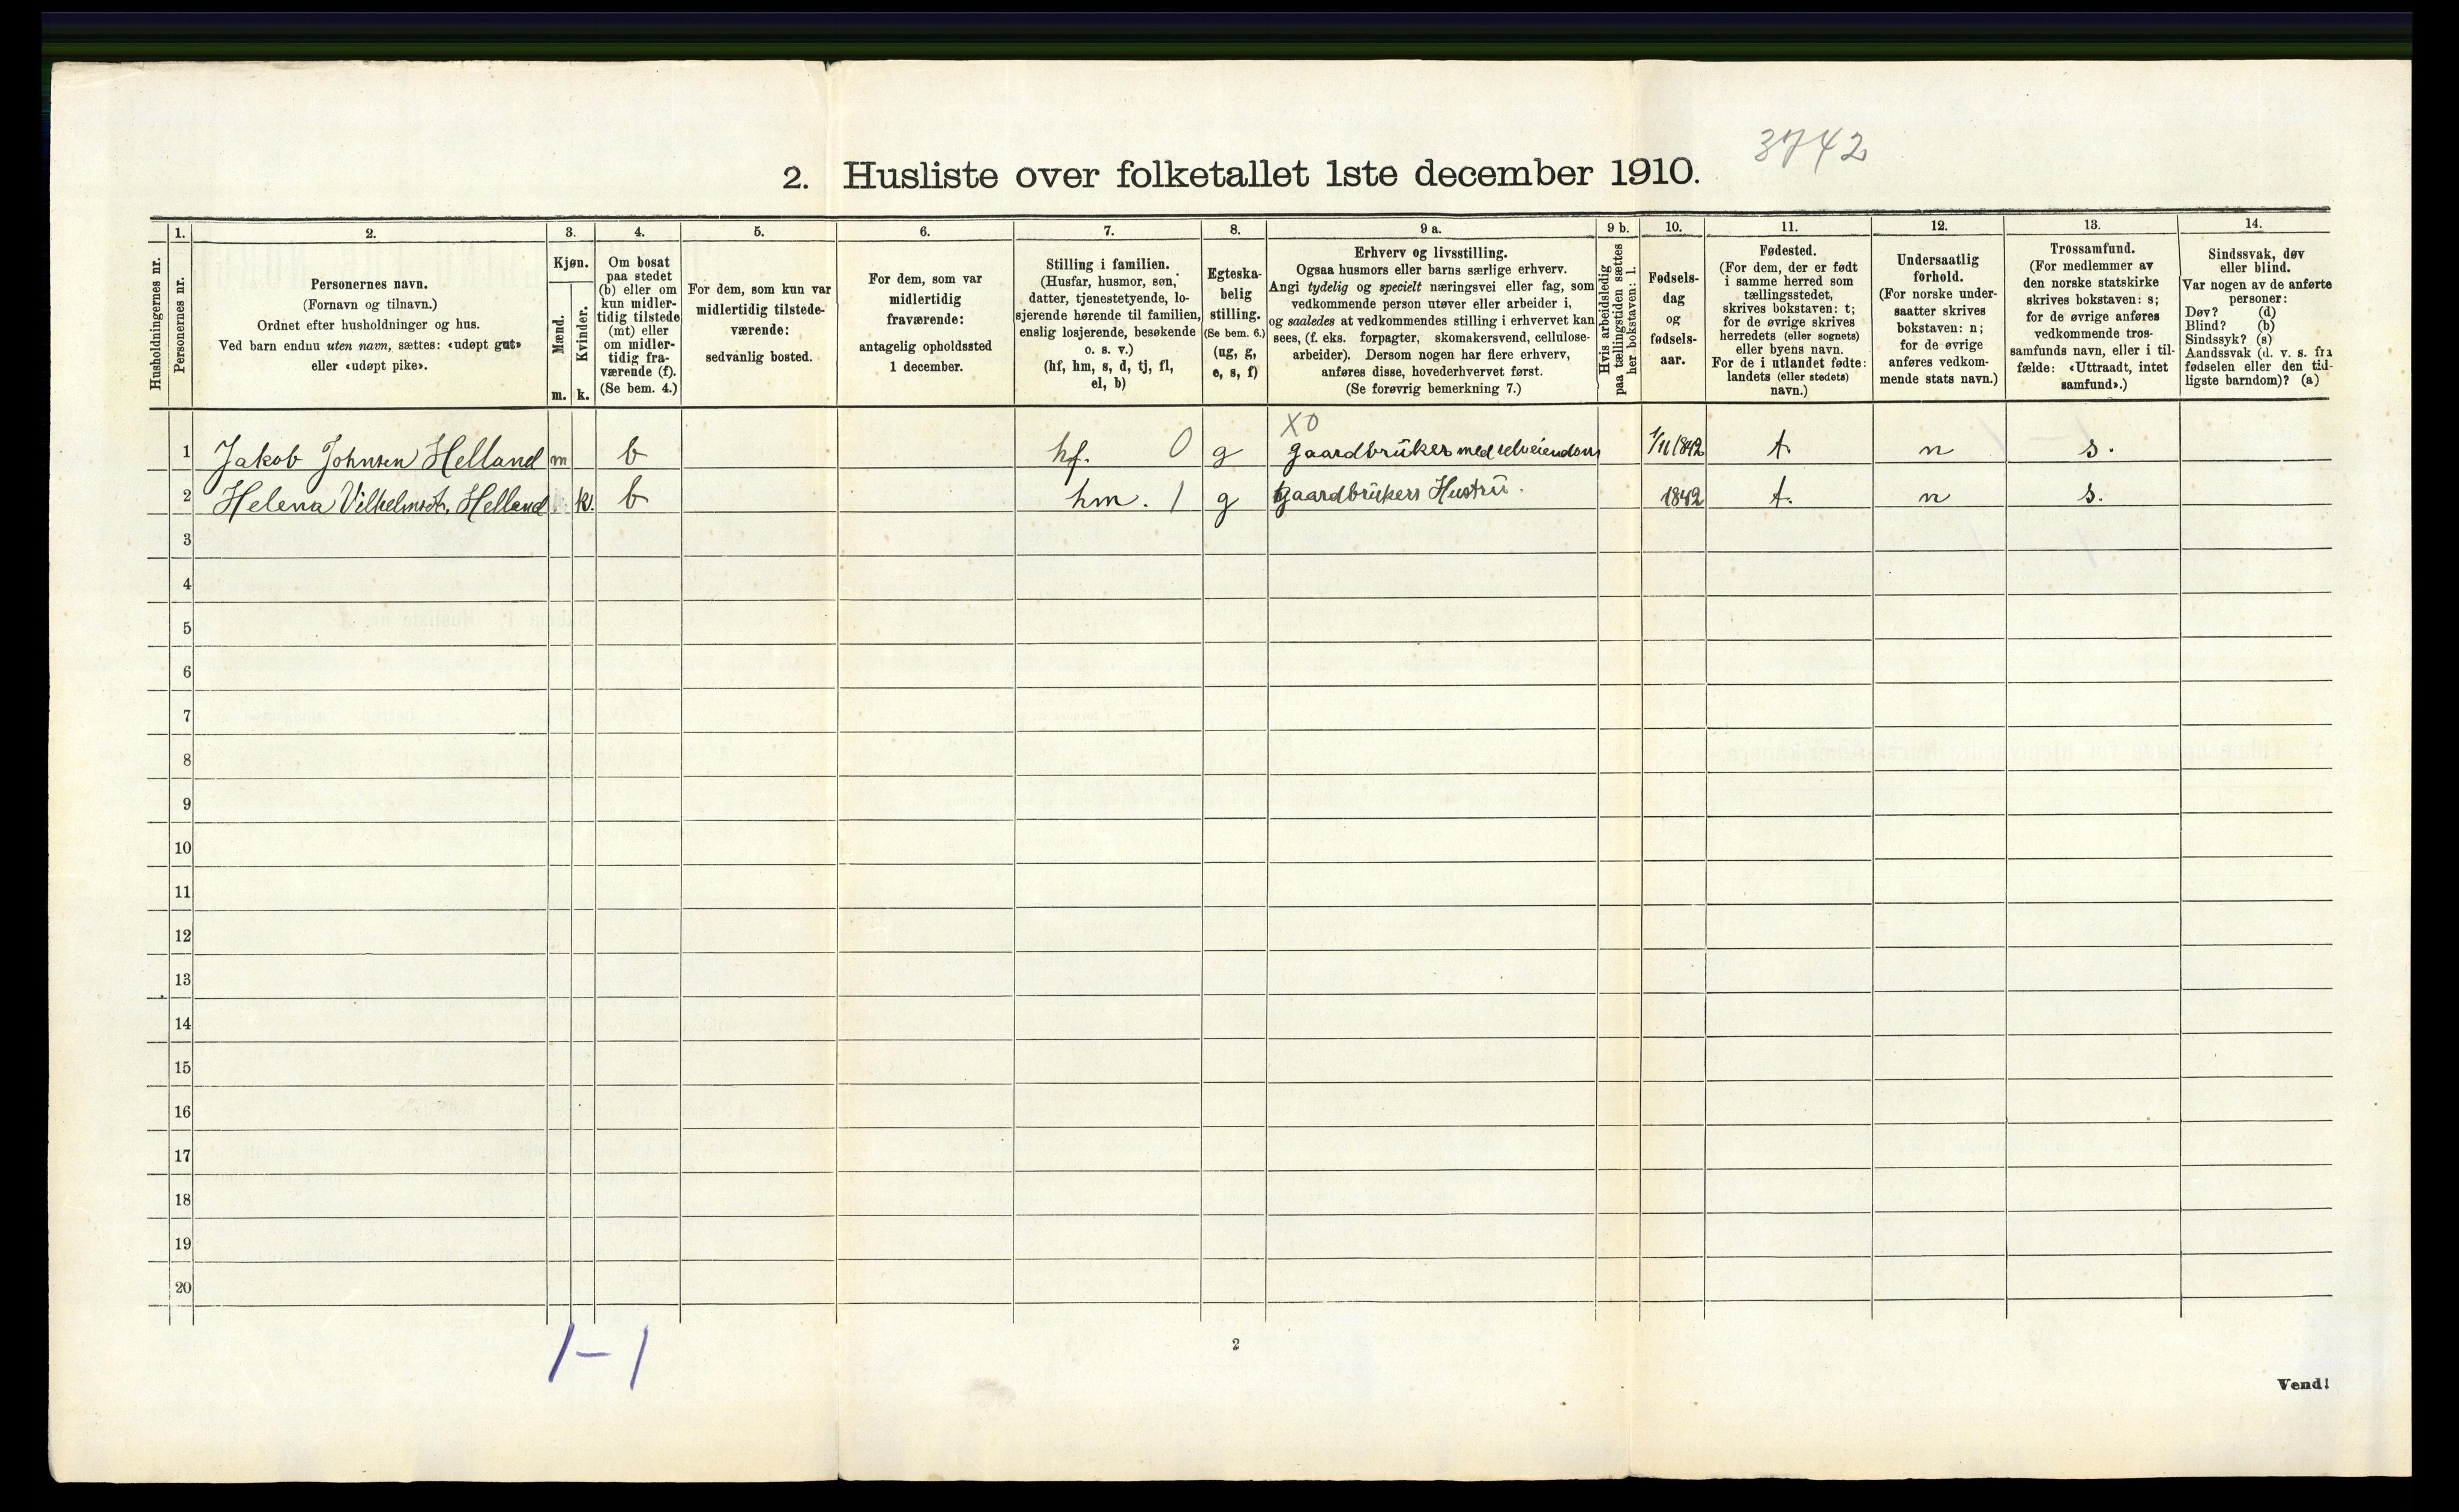 3742
2. Husliste over folketallet 1ste december 1910.
Husholdningernes nr.
1.
Personernes nr.
2.
Personernes navn.
(Fornavn og tilnavn.)
Ordnet efter husholdninger og hus.
Ved barn endnu uten navn, sættes: «udøpt gut»
eller «udøpt pike».
3.
Kjøn.
Mænd.
Kvinder.
m. k.
4.
Om bosat
paa stedet
(b) eller om
kun midler-
tidig tilstede
(mt) eller
om midler-
tidig fra-
værende (f).
(Se bem. 4.)
5.
For dem, som kun var
midlertidig tilstede-
værende:
sedvanlig bosted.
6.
For dem, som var
midlertidig
fraværende:
antagelig opholdssted
1 december.
7.
Stilling i familien.
(Husfar, husmor, søn,
datter, tjenestetyende, lo-
sjerende hørende til familien,
enslig losjerende, besøkende
o. s. v.)
(hf, hm, s, d, tj, fl,
el, b)
8.
Egteska-
belig
stilling.
(Se bem. 6.)
(ug, g,
e, s, f)
9 a.
Erhverv og livsstilling.
Ogsaa husmors eller barns særlige erhverv.
Angi tydelig og specielt næringsvei eller fag, som
vedkommende person utøver eller arbeider i,
og saaledes at vedkommendes stilling i erhvervet kan
sees, (f. eks. forpagter, skomakersvend, cellulose-
arbeider). Dersom nogen har flere erhverv,
anføres disse, hovederhvervet først.
(Se forøvrig bemerkning 7.)
9 b.
Hvis arbeidsledig
paa tællingstiden sættes
her bokstaven: l.
10.
Fødsels-
dag
og
fødsels-
aar.
11.
Fødested.
(For dem, der er født
i samme herred som
tællingsstedet,
skrives bokstaven: t;
for de øvrige skrives
herredets (eller sognets)
eller byens navn.
For de i utlandet fødte:
landets (eller stedets)
navn.)
12.
Undersaatlig
forhold.
(For norske under-
saatter skrives
bokstaven: n;
for de øvrige
anføres vedkom-
mende stats navn.)
13.
Trossamfund.
(For medlemmer av
den norske statskirke
skrives bokstaven: s;
for de øvrige anføres
vedkommende tros-
samfunds navn, eller i til-
fælde: «Uttraadt, intet
samfund».)
14.
Sindssvak, døv
eller blind.
Var nogen av de anførte
personer:
Døv? (d)
Blind? (b)
Sindssyk? (s)
Aandssvak (d. v. s. fra
fødselen eller den tid-
ligste barndom)? (a)
X0
1 Jakob Johnsen Helland m b hf. 0 g gaardbrüker med selveiendom 1/11 1842 t. n s.
2 Helena Vilhelmsdt. Helland k. b hm. 1 g gaardbrükers Hustrü. 1842 t. n s.
3
4
5
6
7
8
9
10
11
12
13
14
15
16
17
18
19
20
1-1
2
Vend!